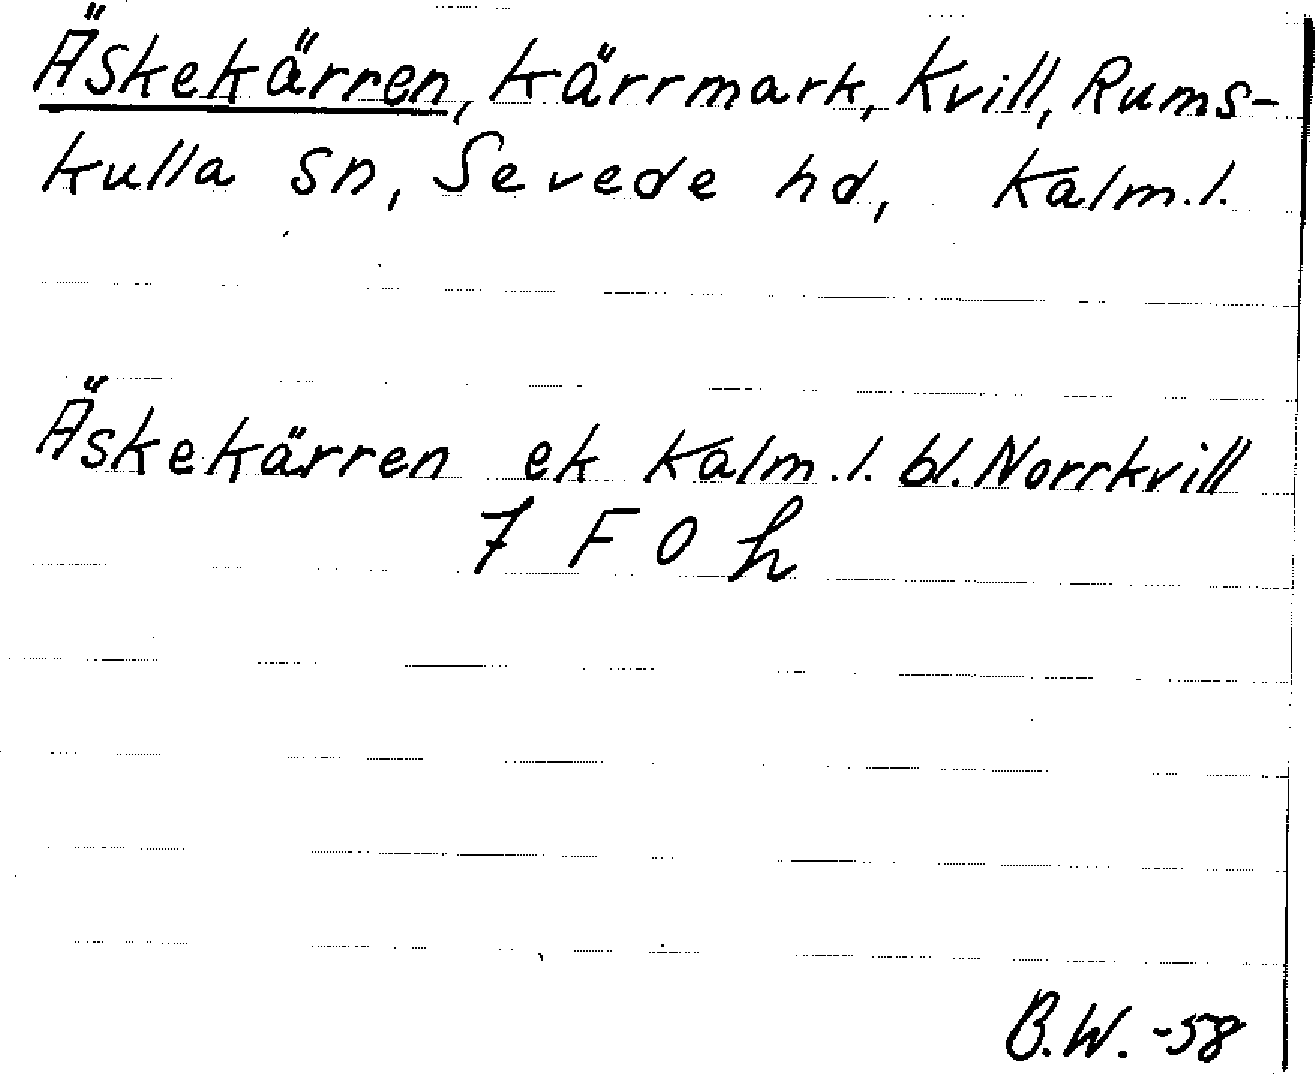 Äskekärren, kärrmark, Kvill, Rums-
kulla sn, Sevede hd, Kalm.l.
Äskekärren ek Kalm.l. bl. Norrkvill
7 F 0 h
B.W. -58